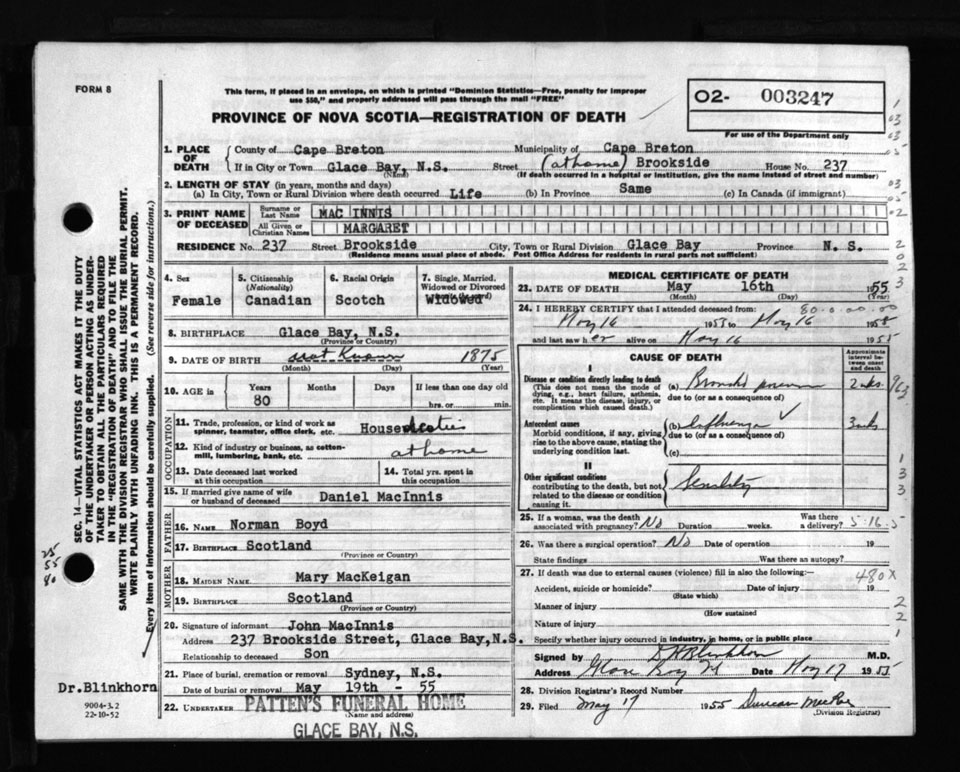 FORM 8
This form, if placed in an envelope, on which is printed "Dominion Statistics—Free, penalty for improper
use $50," and properly addressed will pass through the mail "FREE"
PROVINCE OF NOVA SCOTIA—REGISTRATION OF DEATH
O2- 003247
For use of the Department only
1. PLACE OF DEATH
County of Cape Breton Municipality of Cape Breton
If in City or Town Glace Bay, N.S. Street (at home) Brookside House No. 237
(Name) (If death occurred in a hospital or institution, give the name instead of street and number)
2. LENGTH OF STAY (in years, months and days)
(a) In City, Town or Rural Division where death occurred Life (b) In Province Same (c) In Canada (if immigrant)
3. PRINT NAME OF DECEASED
Surname or Last Name MAC INNIS
All Given or Christian Names MARGARET
RESIDENCE No. 237 Street Brookside City, Town or Rural Division Glace Bay Province N. S.
(Residence means usual place of abode. Post Office Address for residents in rural parts not sufficient)
4. Sex
Female
5. Citizenship
(Nationality)
Canadian
6. Racial Origin
Scotch
7. Single, Married,
Widowed or Divorced
Widowed
8. BIRTHPLACE Glace Bay, N.S.
(Province or Country)
9. DATE OF BIRTH not Known 1875
(Month) (Day) (Year)
10. AGE in Years Months Days If less than one day old
80 hrs. or min.
OCCUPATION
11. Trade, profession, or kind of work as
spinner, teamster, office clerk, etc. House duties
12. Kind of industry or business, as cotton-
mill, lumbering, bank, etc. at home
13. Date deceased last worked
at this occupation
14. Total yrs. spent in
this occupation
15. If married give name of wife
or husband of deceased Daniel MacInnis
FATHER
16. NAME Norman Boyd
17. BIRTHPLACE Scotland
(Province or Country)
MOTHER
18. MAIDEN NAME Mary MacKeigan
19. BIRTHPLACE Scotland
(Province or Country)
20. Signature of informant John MacInnis
Address 237 Brookside Street, Glace Bay,N.S.
Relationship to deceased Son
21. Place of burial, cremation or removal Sydney, N.S.
Date of burial or removal May 19th - 55
22. UNDERTAKER PATTEN'S FUNERAL HOME
(Name and address)
GLACE BAY, N.S.
MEDICAL CERTIFICATE OF DEATH
23. DATE OF DEATH May 16th 1955
(Month) (Day) (Year)
24. I HEREBY CERTIFY that I attended deceased from: 80-0-00-00
May 16 1955 to May 16 1955
and last saw her alive on May 16 1955
CAUSE OF DEATH
Approximate
interval be-
tween onset
and death
I
Disease or condition directly leading to death
(This does not mean the mode of
dying, e.g., heart failure, asthenia,
etc. It means the disease, injury, or
complication which caused death.)
(a) 2 wks.
due to (or as a consequence of)
Antecedent causes
Morbid conditions, if any, giving
rise to the above cause, stating the
underlying condition last.
(b) Influenza ✓ 3 wks
due to (or as a consequence of)
(c)
II
Other significant conditions
contributing to the death, but not
related to the disease or condition
causing it.
Senility
25. If a woman, was the death
associated with pregnancy? No Duration weeks. Was there
a delivery? 5-16-5
26. Was there a surgical operation? No Date of operation 19
State findings Was there an autopsy?
27. If death was due to external causes (violence) fill in also the following:— 480X
Accident, suicide or homicide? Date of injury 19
(State which)
Manner of injury
(How sustained
Nature of injury
Specify whether injury occurred in industry, in home, or in public place
Signed by Blinkhorn M.D.
Address Glace Bay Date May 17 1955
28. Division Registrar's Record Number
29. Filed May 17 1955 Duncan
(Division Registrar)
SEC. 14—VITAL STATISTICS ACT MAKES IT THE DUTY
OF THE UNDERTAKER OR PERSON ACTING AS UNDER-
TAKER TO OBTAIN ALL THE PARTICULARS REQUIRED
IN THE "REGISTRATION OF DEATH" AND TO FILE THE
SAME WITH THE DIVISION REGISTRAR WHO SHALL ISSUE THE BURIAL PERMIT.
WRITE PLAINLY WITH UNFADING INK. THIS IS A PERMANENT RECORD.
Every item of information should be carefully supplied. (See reverse side for instructions.)
55
80
Dr.Blinkhorn
9004-3.2
22-10-52